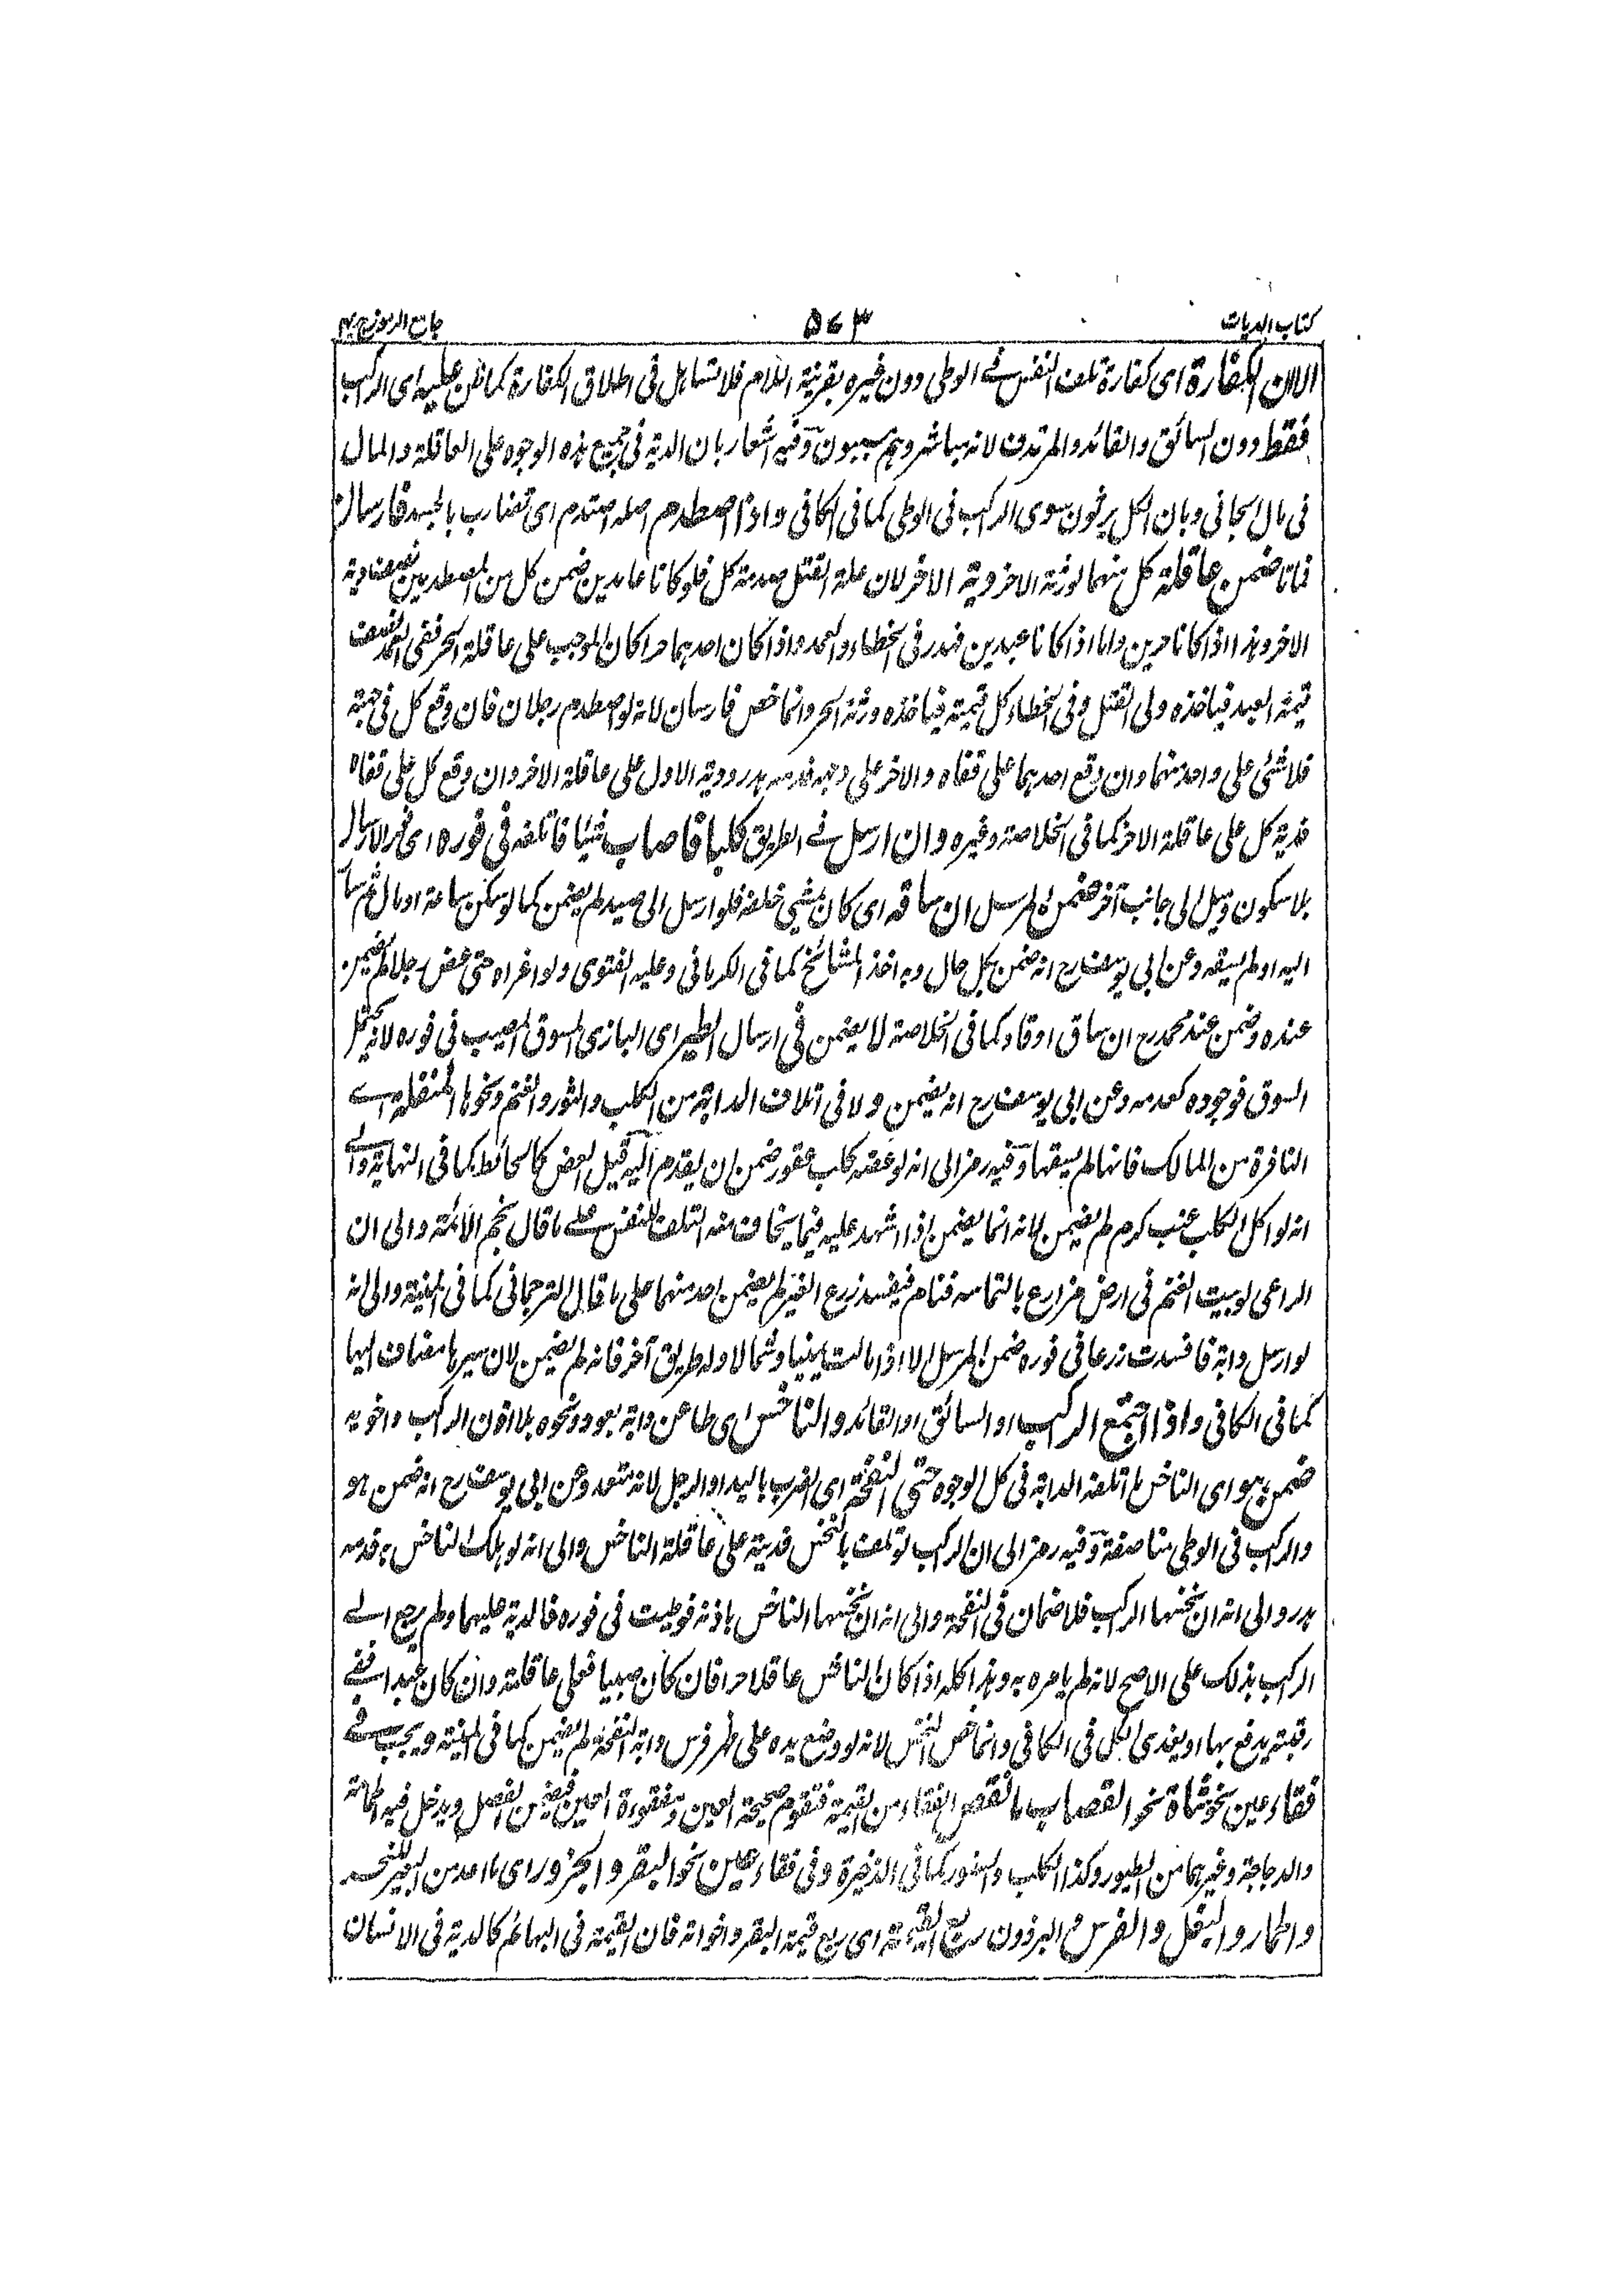 كتاب الديات ٥٦٣ جامع الرموز ج ٢
الا ان الكفارة اى كفارة تلف النفس فے الوطى دون غيره بقرينة اللام فلا تساهل فى اطلاق الكفارة كما ظن عليه اى الراكب
فقط دون السائق والقائد والمرتدف لانه مباشر وهم مسببون وفيه اشعار بان الدية فى جميع هذه الوجوه على العاقلة والمال
فى مال الجانى وبان الكل يرثون سوى الراكب فى الوطى كما فى الكافى واذا اصطدم اصله اصتدم اى تضارب بالجسد فارسان
فماتا ضمن عاقلة كل منهما لورثة الاخر دية الاخر لان علة القتل صدمة كل فلو كانا عامدين ضمن كل من المصطدمين نصف دية
الاخر وهذا اذا كانا حرين واما اذا كانا عبدين فهدر فى الخطاء والعمد واذا كان احدهما حرا كان الموجب على عاقلة الحر ففى العمد نصف
قيمة العبد فياخذه ولى القتل وفى الخطاء كل قيمته فياخذه ورثة الحر وانما خص فارسان لانه لو اصطدم رجلان فان وقع كل فى جبهته
فلا شئ على واحد منهما وان وقع احدهما على قفاه والاخر على وجهه فدمه هدر ودية الاول على عاقلة الاخر وان وقع كل على قفاه
فدية كل على عاقلة الاخر كما فى الخلاصة وغيره وان ارسل فے الطريق كلبا فاصاب شيئا فاتلفه فى فوره اى فور الارسال
بلا سكون وميل الى جانب آخر ضمن المرسل ان ساقه اى كان يمشى خلفه فلو ارسل الى صيد لم يضمن كما لو سكن ساعة او مال ثم سار
اليه او لم يسقه وعن ابى يوسف رح انه ضمن بكل حال وبه اخذ المشائخ كما فى الكرمانى وعليه الفتوى ولو اغراه حتى عض رجلا لم يضمن
عنده وضمن عند محمد رح ان ساق او قاد كما فى الخلاصة لا يضمن فى ارسال الطير اى البازى المسوق المصيب فى فوره لانه لا يحتمل
السوق فوجوده كعدمه وعن ابى يوسف رح انه يضمن ولا فى اتلاف الدابة من الكلب والثور والغنم ونحوها المنفلتة اے
النافرة من المالك فانها لم يسقها وفيه رمز الى انه لو عضه كلب عقور ضمن ان يقدم اليه قبيل العض كالحائط كما فى النهاية والے
انه لو اكل الكلب عنب كرم لم يضمن لانه انما يضمن اذا اشهد عليه فيما يخاف منه التلف للنفس علے ما قال نجم الائمة والى ان
الراعى لو بيت الغنم فى ارض مزارع بالتماسه فنام فيفسد زرع الغير لم يضمن احد منهما على ما قال الترجمانى كما فى المنية والى انه
لو ارسل دابة فافسدت زرعا فى فوره ضمن المرسل الا اذا مالت يمينا وشمالا وله طريق آخر فانه لم يضمن لان سيرها مضاف اليها
كما فى الكافى واذا اجتمع الراكب او السائق او القائد والناخس اى طاعن دابة بعود ونحوه بلا اذن الراكب واخويه
ضمن هو اى الناخس ما اتلفته الدابة فى كل الوجوه حتى النفحة اى الضرب باليد او الرجل لانه متعد وعن ابى يوسف رح انه ضمن هو
والراكب فى الوطى مناصفة وفيه رمز الى ان الراكب لو تلف بالنخس فديته على عاقلة الناخس والى انه لو هلك الناخس به فدمه
هدر والى انه ان نخسها الراكب فلا ضمان فى النفحة والى انه ان نخسها الناخس باذنه فوطيت فى فوره فالدية عليهما ولم يرجع الے
الراكب بذلك على الاصح لانه لم يامره به وهذا كله اذا كان الناخس عاقلا حرا فان كان صبيا فعلى عاقلته وان كان عبدا ففے
رقبته يدفع بها او يفدى الكل فى الكافى وانما خص النخس لانه لو وضع يده على ظهر فرس دابة النفحة لم يضمن كما فى المنية ويجب فے
فقاء عين نحو شاة نحو القصاب ما نقص الفقاء من القيمة فتقوم صحيحة العين ومفقودة العين فيضمن الفضل ويدخل فيه الحمامة
والدجاجة وغيرهما من الطيور وكذا الكلب والسنور كما فى الذخيرة وفى فقاء عين نحو البقر والجزور اى ما اعد من البعير للنحر
والحمار والبغل والفرس البرذون ربع القيمة اى ربع قيمة البقر واخواته فان القيمة فى البهائم كالدية فى الانسان